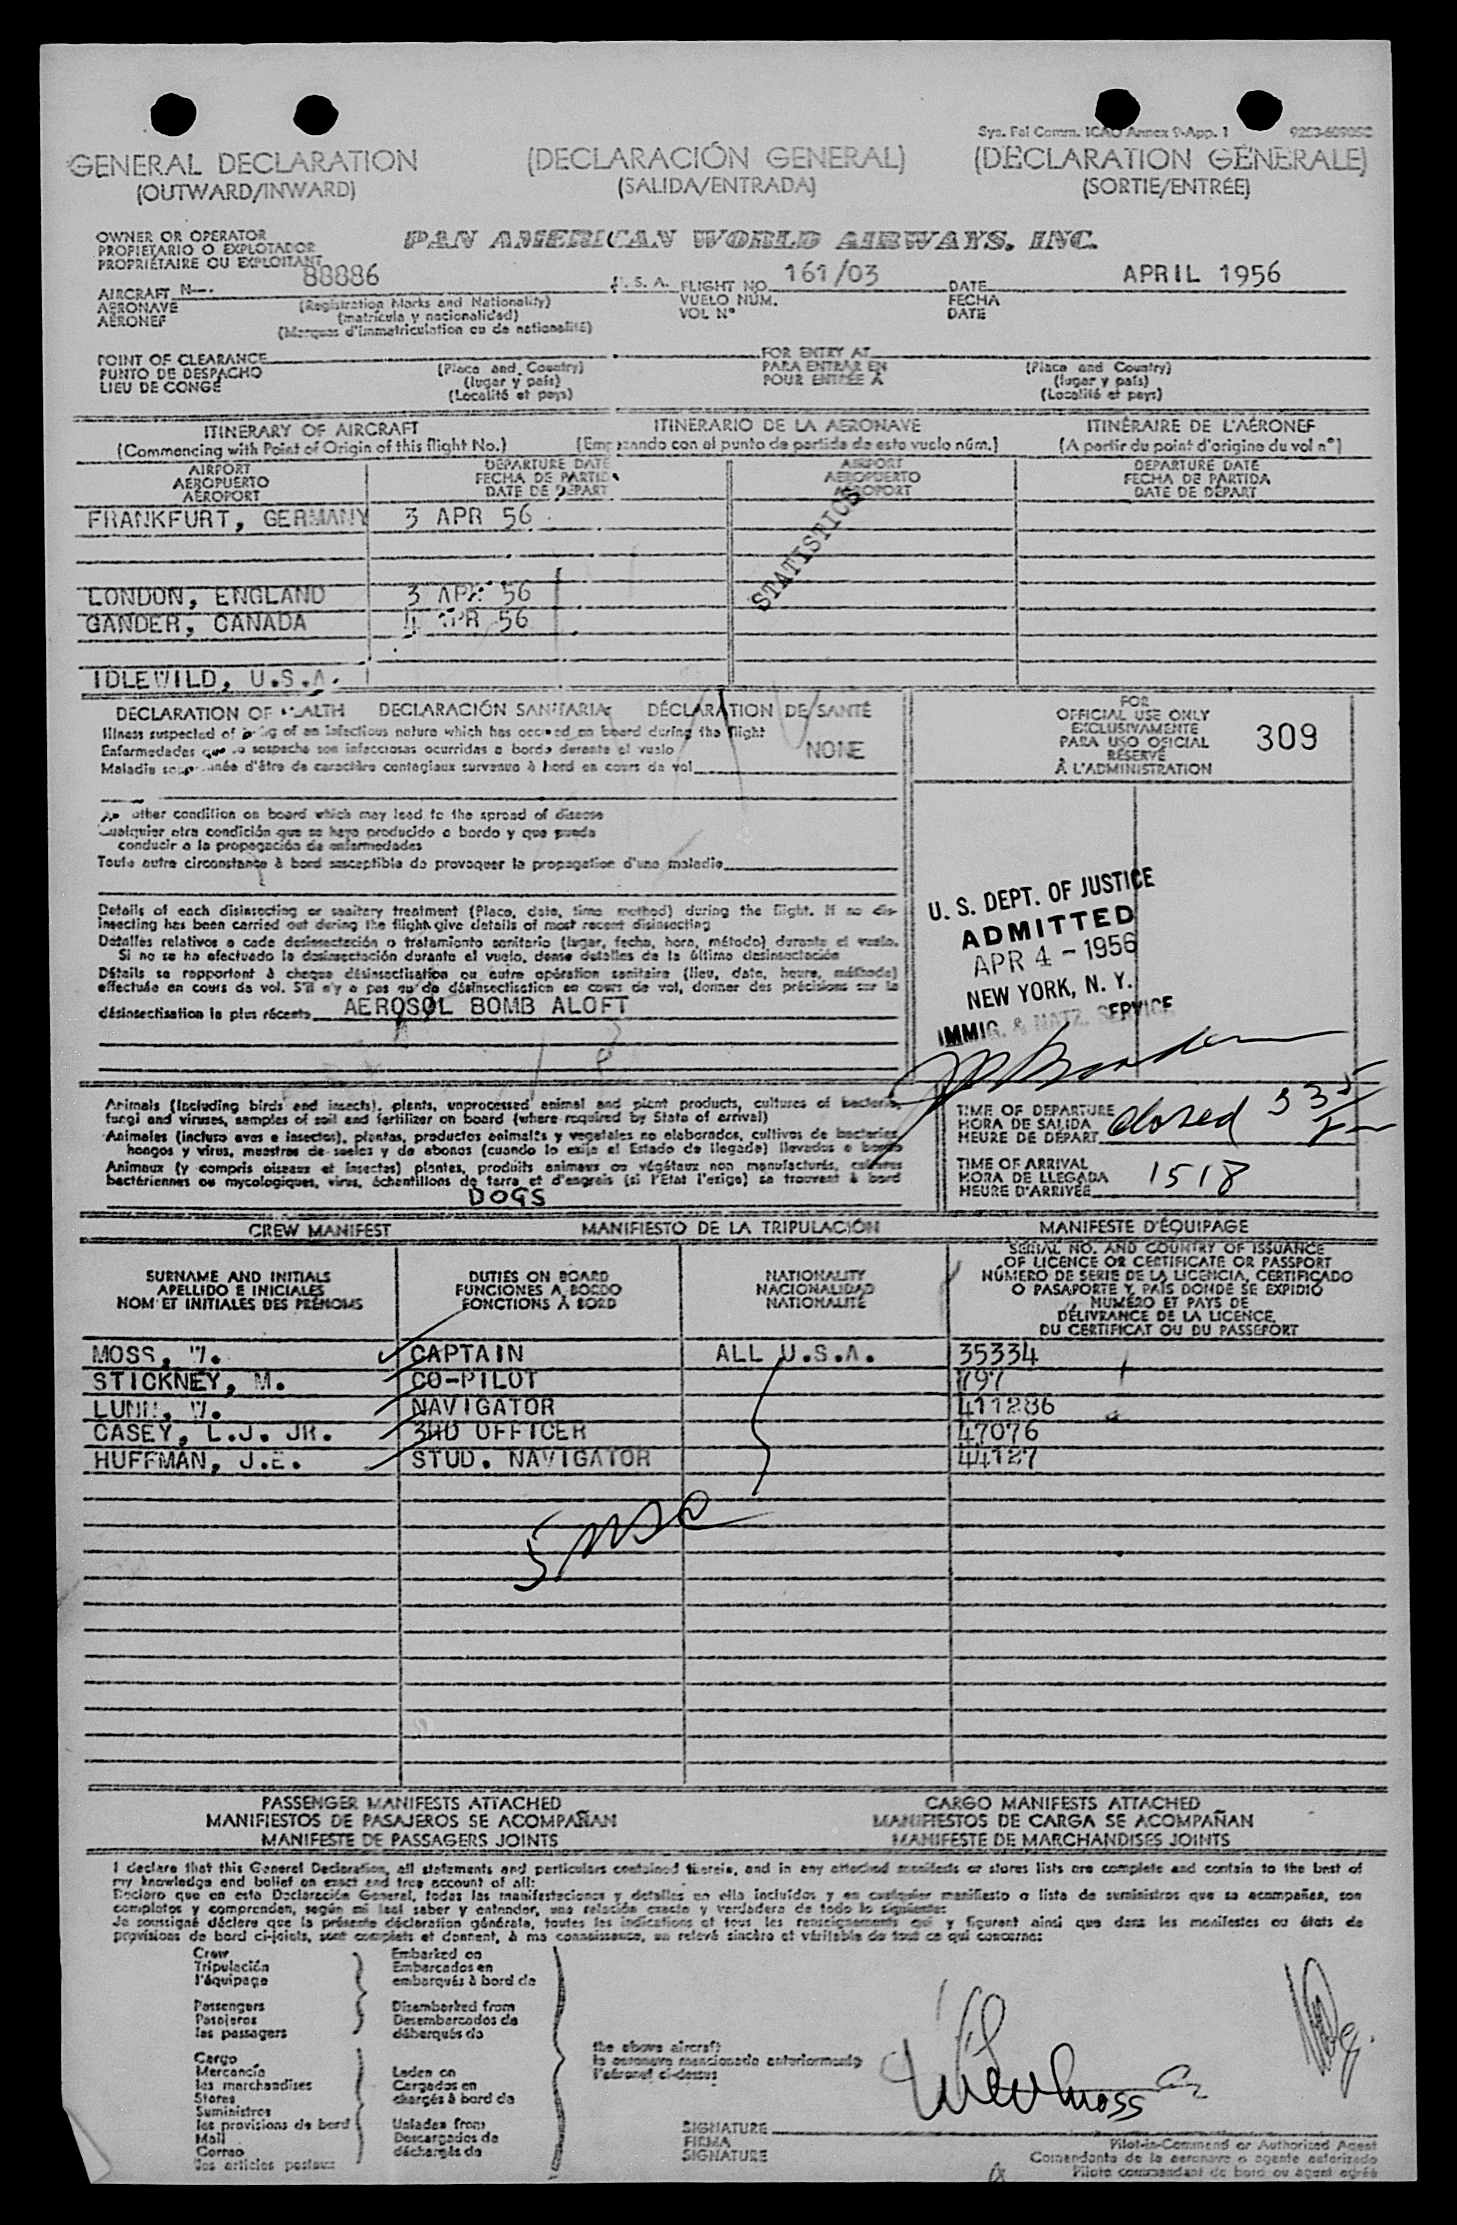 Sys. Fal Comm. ICAO Annex 9-App. 1
GENERAL DECLARATION (DECLARACIÓN GENERAL) (DECLARATION GÉNÉRALE)
(OUTWARD/INWARD) (SALIDA/ENTRADA) (SORTIE/ENTRÉE)
OWNER OR OPERATOR
PROPIETARIO O EXPLOTADOR
PROPRIÉTAIRE OU EXPLOITANT
PAN AMERICAN WORLD AIRWAYS, INC.
AIRCRAFT N—. 88886 U. S. A. FLIGHT NO. 161/03 DATE APRIL 1956
AERONAVE (Registration Marks and Nationality) VUELO NÚM. FECHA
AÉRONEF (matrícula y nacionalidad) VOL N° DATE
(Marques d'immatriculation ou de nationalité)
POINT OF CLEARANCE FOR ENTRY AT
PUNTO DE DESPACHO (Place and Country) PARA ENTRAR EN (Place and Country)
LIEU DE CONGÉ (lugar y país) POUR ENTRÉE À (lugar y país)
(Localité et pays) (Localité et pays)
ITINERARY OF AIRCRAFT ITINERARIO DE LA AERONAVE ITINÉRAIRE DE L'AÉRONEF
(Commencing with Point of Origin of this flight No.) (Empezando con el punto de partida de este vuelo núm.) (A partir du point d'origine du vol n°)
AIRPORT DEPARTURE DATE AIRPORT DEPARTURE DATE
AEROPUERTO FECHA DE PARTIDA AEROPUERTO FECHA DE PARTIDA
AÉROPORT DATE DE DÉPART AÉROPORT DATE DE DÉPART
FRANKFURT, GERMANY 3 APR 56
STATISTICS
LONDON, ENGLAND 3 APR 56
GANDER, CANADA 4 APR 56
IDLEWILD, U.S.A.
DECLARATION OF HEALTH DECLARACIÓN SANITARIA DÉCLARATION DE SANTÉ
Illness suspected of being of an infectious nature which has occurred on board during the flight
Enfermedades que se sospecha son infecciosas ocurridas a bordo durante el vuelo
Maladie soupçonnée d'être de caractère contagieux survenue à bord en cours de vol NONE
FOR
OFFICIAL USE ONLY
EXCLUSIVAMENTE
PARA USO OFICIAL
RÉSERVÉ
À L'ADMINISTRATION
309
Any other condition on board which may lead to the spread of disease
Cualquier otra condición que se haya producido a bordo y que pueda
conducir a la propagación de enfermedades
Toute autre circonstance à bord susceptible de provoquer la propagation d'une maladie
Details of each disinsecting or sanitary treatment (Place, date, time method) during the flight. If no dis-
insecting has been carried out during the flight give details of most recent disinsecting
Detalles relativos a cada desinsectación o tratamiento sanitario (lugar, fecha, hora, método) durante el vuelo.
Si no se ha efectuado la desinsectación durante el vuelo, dense detalles de la última desinsectación
Détails se rapportant à chaque désinsectisation ou autre opération sanitaire (lieu, date, heure, méthode)
effectuée en cours de vol. S'il n'y a pas eu de désinsectisation en cours de vol, donner des précisions sur la
désinsectisation la plus récente AEROSOL BOMB ALOFT
U. S. DEPT. OF JUSTICE
ADMITTED
APR 4 - 1956
NEW YORK, N. Y.
IMMIG. & NATZ. SERVICE
Animals (including birds and insects), plants, unprocessed animal and plant products, cultures of bacteria,
fungi and viruses, samples of soil and fertilizer on board (where required by State of arrival)
Animales (incluso aves e insectos), plantas, productos animales y vegetales no elaborados, cultivos de bacterias
hongos y virus, muestras de suelos y de abonos (cuando lo exija el Estado de llegada) llevados a bordo
Animaux (y compris oiseaux et insectes) plantes, produits animaux ou végétaux non manufacturés, cultures
bactériennes ou mycologiques, virus, échantillons de terre et d'engrais (si l'Etat l'exige) se trouvant à bord
DOGS
TIME OF DEPARTURE
HORA DE SALIDA
HEURE DE DÉPART closed 535
TIME OF ARRIVAL
HORA DE LLEGADA
HEURE D'ARRIVÉE 1518
CREW MANIFEST MANIFIESTO DE LA TRIPULACIÓN MANIFESTE D'ÉQUIPAGE
SURNAME AND INITIALS
APELLIDO E INICIALES
NOM ET INITIALES DES PRÉNOMS
DUTIES ON BOARD
FUNCIONES A BORDO
FONCTIONS À BORD
NATIONALITY
NACIONALIDAD
NATIONALITÉ
SERIAL NO. AND COUNTRY OF ISSUANCE
OF LICENCE OR CERTIFICATE OR PASSPORT
NÚMERO DE SERIE DE LA LICENCIA, CERTIFICADO
O PASAPORTE Y PAÍS DONDE SE EXPIDIÓ
NUMÉRO ET PAYS DE
DÉLIVRANCE DE LA LICENCE,
DU CERTIFICAT OU DU PASSEPORT
MOSS, W. CAPTAIN ALL U.S.A. 35334
STICKNEY, M. CO-PILOT 797
LUNN, W. NAVIGATOR 411286
CASEY, L.J. JR. 3RD OFFICER 47076
HUFFMAN, J.E. STUD. NAVIGATOR 44127
PASSENGER MANIFESTS ATTACHED CARGO MANIFESTS ATTACHED
MANIFIESTOS DE PASAJEROS SE ACOMPAÑAN MANIFIESTOS DE CARGA SE ACOMPAÑAN
MANIFESTE DE PASSAGERS JOINTS MANIFESTE DE MARCHANDISES JOINTS
I declare that this General Declaration, all statements and particulars contained therein, and in any attached manifests or stores lists are complete and contain to the best of
my knowledge and belief an exact and true account of all:
Declaro que en esta Declaración General, todas las manifestaciones y detalles en ella incluidos y en cualquier manifiesto o lista de suministros que se acompañan, son
completos y comprenden, según mi leal saber y entender, una relación exacta y verdadera de todo lo siguiente:
Je soussigné déclare que la présente déclaration générale, toutes les indications et tous les renseignements qui y figurent ainsi que dans les manifestes ou états de
provisions de bord ci-joints, sont complets et donnent, à ma connaissance, un relevé sincère et véritable de tout ce qui concerne:
Crew Embarked on
Tripulación Embarcados en
l'équipage embarqués à bord de
Passengers Disembarked from
Pasajeros Desembarcados de
les passagers débarqués de
Cargo
Mercancía Laden on
les marchandises Cargados en
Stores chargés à bord de
Suministros
les provisions de bord Unladen from
Mail Descargados de
Correo déchargés de
les articles postaux
the above aircraft
la aeronave mencionada anteriormente
l'aéronef ci-dessus
SIGNATURE
FIRMA
SIGNATURE
Pilot-in-Command or Authorized Agent
Comandante de la aeronave o agente autorizado
Pilote commandant de bord ou agent agréé